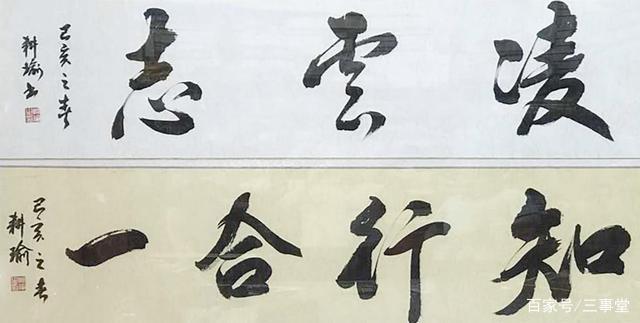 凌雲志
己亥之春
耕瑜书
知行合一
己亥之春
耕瑜
百家号/三事堂